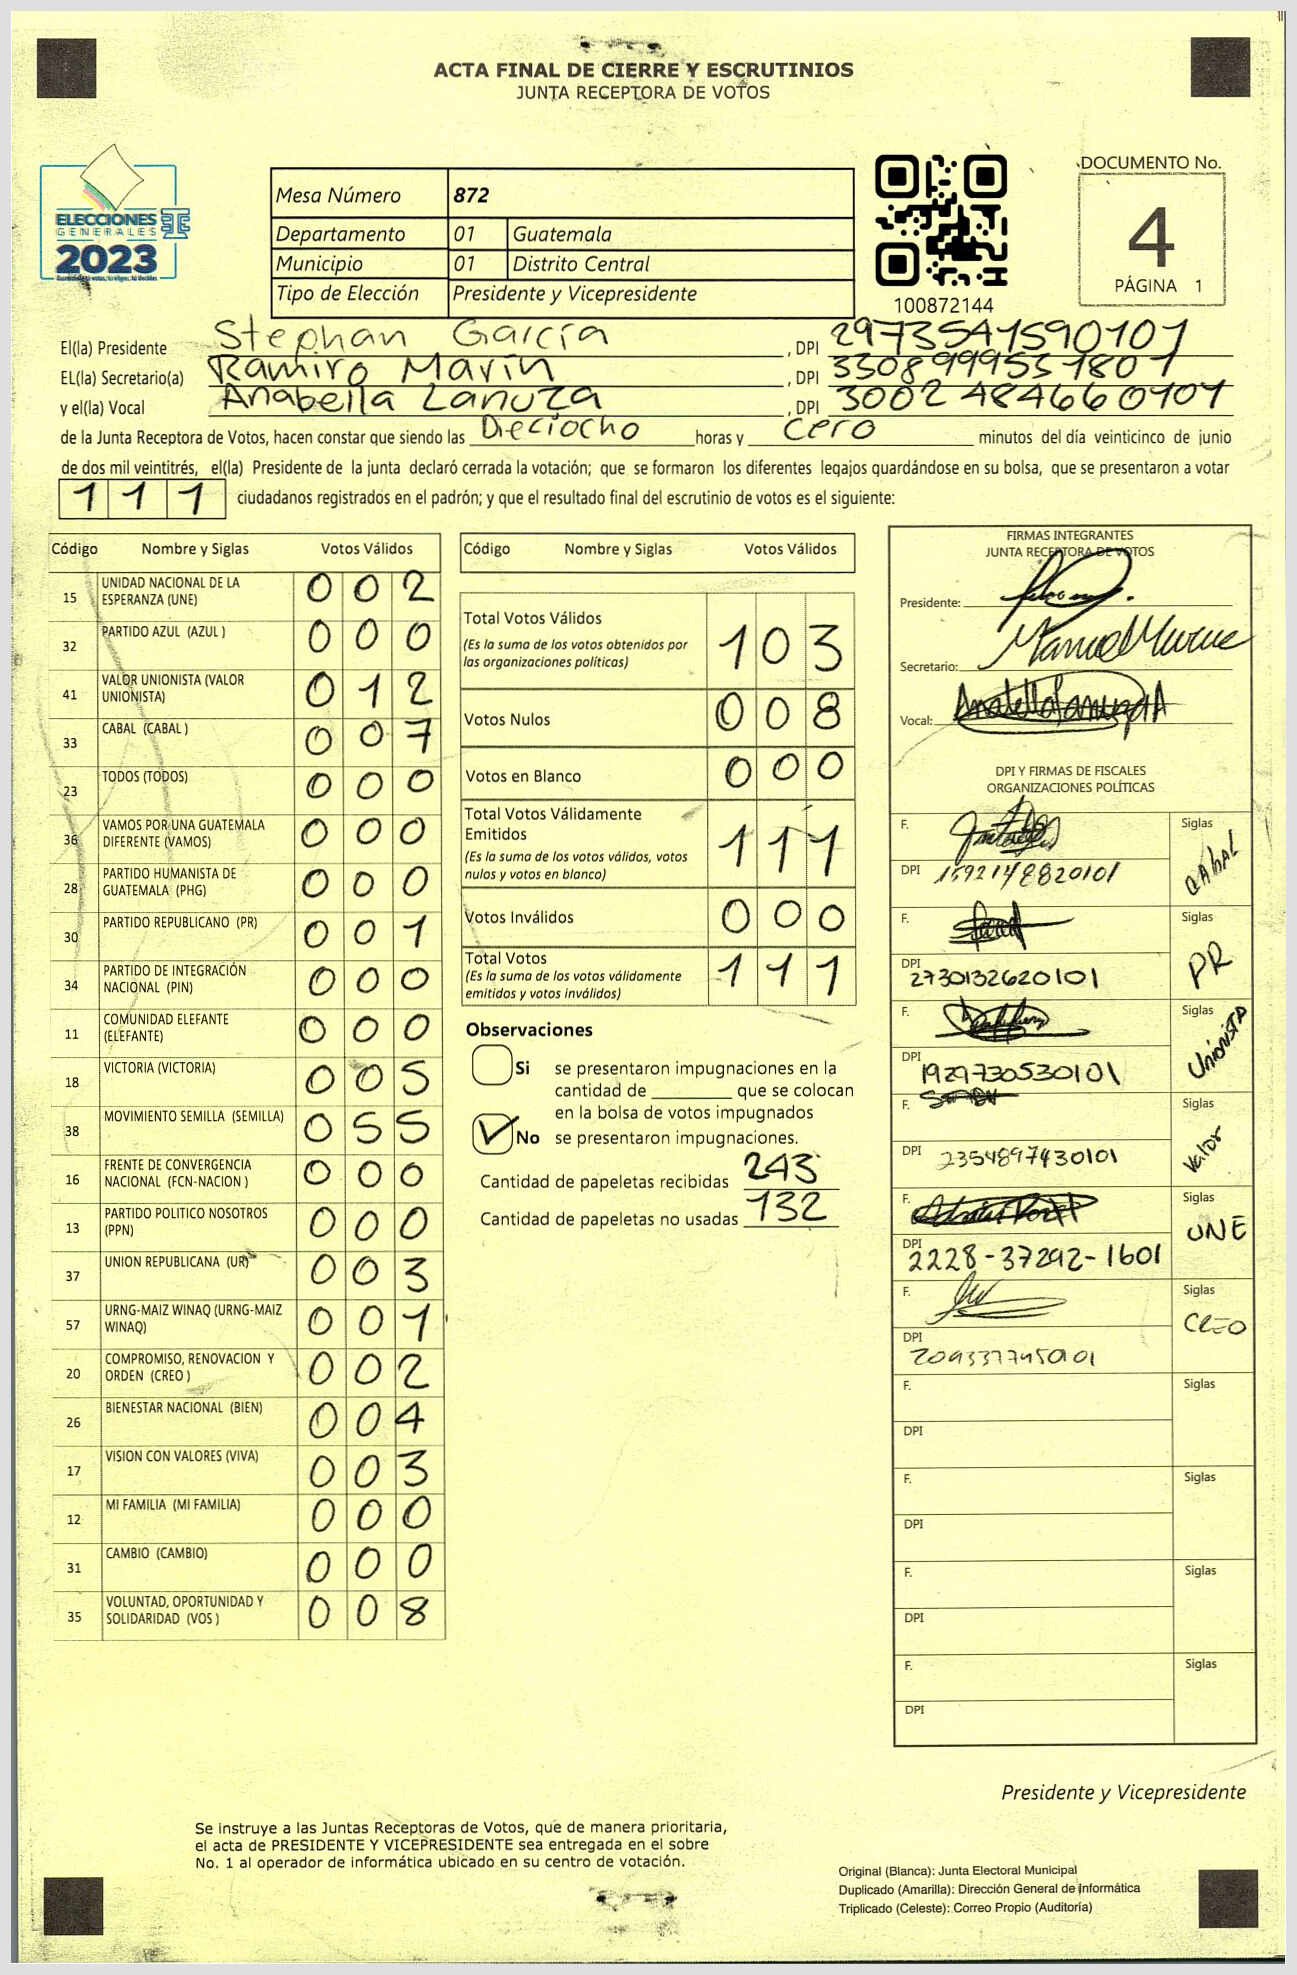 ACTA FINAL DE CIERRE Y ESCRUTINIOS
JUNTA RECEPTORA DE VOTOS
ELECCIONES
GENERALES
2023
Mesa Número 872
Departamento 01 Guatemala
Municipio 01 Distrito Central
Tipo de Elección Presidente y Vicepresidente
100872144
DOCUMENTO No.
4
PÁGINA 1
El(la) Presidente Stephan García , DPI 2973541590101
EL(la) Secretario(a) Ramiro Marín , DPI 3308999551801
y el(la) Vocal Anabella Lanuza , DPI 3002484660101
de la Junta Receptora de Votos, hacen constar que siendo las Dieciocho horas y cero minutos del día veinticinco de junio
de dos mil veintitrés, el(la) Presidente de la junta declaró cerrada la votación; que se formaron los diferentes legajos guardándose en su bolsa, que se presentaron a votar
111 ciudadanos registrados en el padrón; y que el resultado final del escrutinio de votos es el siguiente:
Código Nombre y Siglas Votos Válidos
15 UNIDAD NACIONAL DE LA ESPERANZA (UNE) 002
32 PARTIDO AZUL (AZUL ) 000
41 VALOR UNIONISTA (VALOR UNIONISTA) 012
33 CABAL (CABAL ) 007
23 TODOS (TODOS) 000
36 VAMOS POR UNA GUATEMALA DIFERENTE (VAMOS) 000
28 PARTIDO HUMANISTA DE GUATEMALA (PHG) 000
30 PARTIDO REPUBLICANO (PR) 001
34 PARTIDO DE INTEGRACIÓN NACIONAL (PIN) 000
11 COMUNIDAD ELEFANTE (ELEFANTE) 000
18 VICTORIA (VICTORIA) 005
38 MOVIMIENTO SEMILLA (SEMILLA) 055
16 FRENTE DE CONVERGENCIA NACIONAL (FCN-NACION ) 000
13 PARTIDO POLITICO NOSOTROS (PPN) 000
37 UNION REPUBLICANA (UR) 003
57 URNG-MAIZ WINAQ (URNG-MAIZ WINAQ) 001
20 COMPROMISO, RENOVACION Y ORDEN (CREO ) 002
26 BIENESTAR NACIONAL (BIEN) 004
17 VISION CON VALORES (VIVA) 003
12 MI FAMILIA (MI FAMILIA) 000
31 CAMBIO (CAMBIO) 000
35 VOLUNTAD, OPORTUNIDAD Y SOLIDARIDAD (VOS ) 008
Código Nombre y Siglas Votos Válidos
Total Votos Válidos 103
(Es la suma de los votos obtenidos por
las organizaciones políticas)
Votos Nulos 008
Votos en Blanco 000
Total Votos Válidamente
Emitidos 111
(Es la suma de los votos válidos, votos
nulos y votos en blanco)
Votos Inválidos 000
Total Votos 111
(Es la suma de los votos válidamente
emitidos y votos inválidos)
Observaciones
Si se presentaron impugnaciones en la
cantidad de ________ que se colocan
en la bolsa de votos impugnados
No se presentaron impugnaciones.
Cantidad de papeletas recibidas 243
Cantidad de papeletas no usadas 132
FIRMAS INTEGRANTES
JUNTA RECEPTORA DE VOTOS
Presidente:
Secretario:
Vocal:
DPI Y FIRMAS DE FISCALES
ORGANIZACIONES POLÍTICAS
F. Siglas CABAL
DPI 1592148820101
F. Siglas PR
DPI 2730132620101
F. Siglas Unionista
DPI 1929730530101
F. Siglas Valor
DPI 2354897430101
F. Siglas UNE
DPI 2228-37292-1601
F. Siglas CREO
DPI
F. Siglas
DPI
F. Siglas
DPI
F. Siglas
DPI
F. Siglas
DPI
Presidente y Vicepresidente
Se instruye a las Juntas Receptoras de Votos, que de manera prioritaria,
el acta de PRESIDENTE Y VICEPRESIDENTE sea entregada en el sobre
No. 1 al operador de informática ubicado en su centro de votación.
Original (Blanca): Junta Electoral Municipal
Duplicado (Amarilla): Dirección General de Informática
Triplicado (Celeste): Correo Propio (Auditoría)